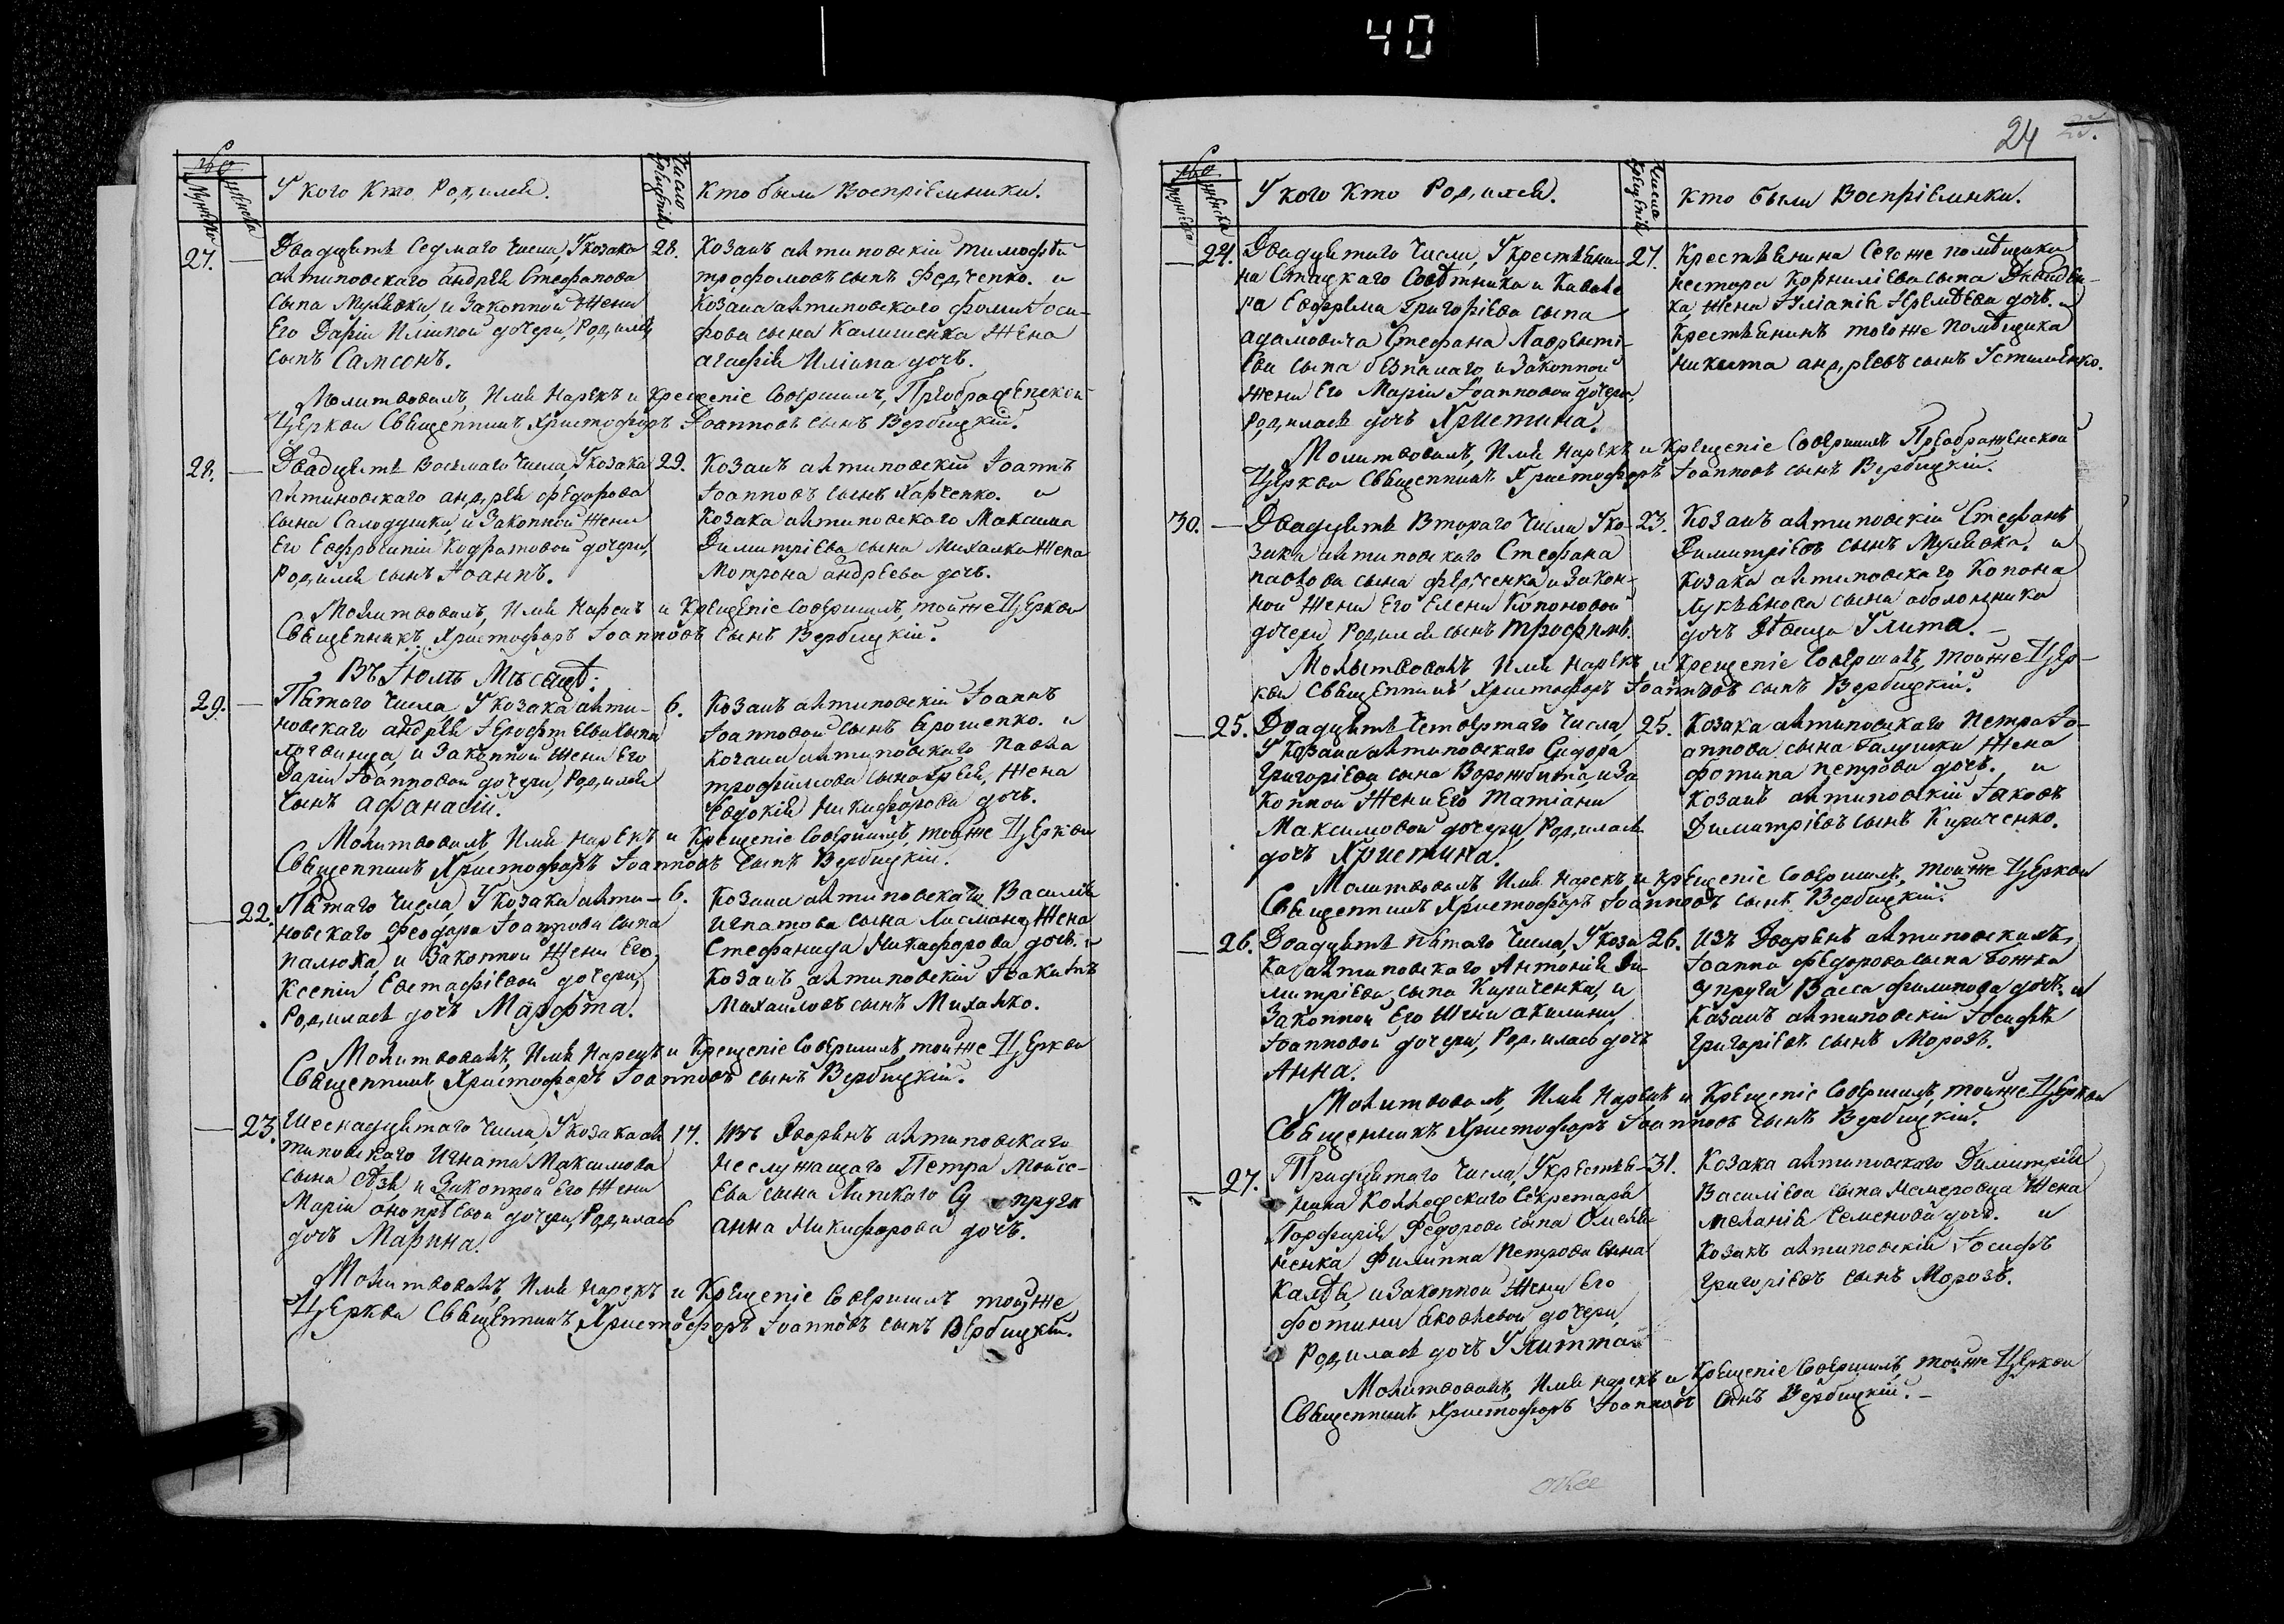 40
24 25.
№
Мужеска
Женска
У кого Кто Родился.
Число Крещенія
Кто были Воспріемники.
27. — Двадцять Седмаго Числа, У козака
яхтиновского андрея Стефанова
сына Мулявки, и Законной Жени
Его Даріи Иліиной дочери, Родился
сынъ Самсонъ.
28. Козакъ яхтиновскій тимофей
трофомовъ сынъ Федченко. и
Козака яхтиновского фоми Іоси-
фова сына Калишенка Жена
агафія Иліина дочь.
Молитвовалъ, Имя Нарекъ и Крещеніе Совершилъ, Преображенской
Церкви Священникъ Христофоръ Іоанновъ сынъ Вербицкій.
28. — Двадцять Восьмаго Числа, У козака
яхтиновскаго андрея федорова
сына Салодушки, и Законной Жени
Его Евфросиніи Кодратовой дочери,
Родился сынъ Іоаннъ.
29. Козакъ яхтиновскій Іоаннъ
Іоанновъ сынъ Харченко. и
Козака яхтиновского Максима
Димитріева сына Михалка Жена
Мотрона андреева дочь.
Молитвовалъ, Имя Нарекъ и Крещеніе Совершилъ, тойже Церкви
Священникъ Христофоръ Іоанновъ Сынъ Вербицкій.
Въ Іюлѣ Мѣсяцѣ:
29. — Пятого Числа У козака яхти-
новскаго андрея Іерофтеева сына
логвинца, и Законной Жени Его
Даріи Іоанновой дочери, Родился
Сынъ Афанасій.
6. Козакъ яхтиновскій Іоаннъ
Іоанновой сынъ Ерошенко. и
Козака яхтиновского Павла
трофимова сына Жена
Евдокія Никифорова дочь.
Молитвовалъ, Имя Нарекъ и Крещеніе Совершилъ, тойже Церкви
Священникъ Христофоръ Іоанновъ Сынъ Вербицкій.
— 22. Пятаго Числа, У козака яхти-
новскаго Феодора Іоаннова сына
палюха и Законной Жени Его,
Ксеніи Евстафіевой дочери,
Родилася дочь Марфта.
6. Козака яхтиновскаго Василія
Игнатова сына Лисманя, Жена
Стефанида Никифорова дочь. и
Козакъ яхтиновскій Іоакимъ
Михаиловъ сынъ Михалко.
Молитвовалъ, Имя Нарекъ и Крещеніе Совершилъ, тойже Церкви
Священникъ Христофоръ Іоанновъ сынъ Вербицкій.
— 23. Шеснадцятаго Числа, У козака ях
тиновскаго Игната Максимова
сына и Законной Его Жени
Маріи онопріевой дочери, Родилась
дочь Марина.
17. Изъ Дворянъ яхтиновскаго
неслужащаго Петра Моисе-
ева сына Липскаго Су пруга
анна Никифорова дочь.
Молитвовалъ, Имя нарекъ и Крещеніе Совершилъ тойже
Церкви Священникъ Христофоръ Іоанновъ сынъ Вербицкій.
№
Мужеска
Женска
У кого Кто Родился.
Числа Крещенія
Кто были Воспріемники.
— 24. Двадцятаго Числа, У крестянина
на Стацкаго Совѣтника и Кавале
ра Евфрема Григоріева сына
адамовича Стефана Лаврентіе-
ева сына безпалаго и Законной
Жени Его Маріи Іоанновой дочери,
Родилася дочь Христина.
27. Крестянина Сегоже помѣщика
нестора Корниліева сына
ка, Жена Уліанія Іеремѣева дочь. и
Крестянинъ тогоже помѣщика
никита андреевъ сынъ Устименко.
Молитвовалъ, Имя Нарекъ и Крещеніе Совершилъ Преображенской
Церкви Священникъ Христофоръ Іоанновъ сынъ Вербицкій.
30. — Двадцять Втораго Числа У ко-
зака яхтиновскаго Стефана
павлова сына федченка и Закон-
ной Жени Его Елени Кононовой
дочери Родился сынъ Трофимъ.
23. Козакъ яхтиновскій Стефанъ
Димитріевъ сынъ Мулявка. и
Козака яхтиновскаго Конона
Лукянова сына оболонника
дочь Дѣвица Улита. —
Молытвовалъ, Имя Нарекъ и Крещеніе Совершилъ, тойже Цер-
кви Священникъ Христофоръ Іоанновъ сынъ Вербицкій.
— 25. Двадцять Четвертаго Числа,
У Козака яхтиновскаго Сидора
Григоріева сына Ворожбита, и За
конной Жени Его Татіани
Максимовой дочери, Родилася
дочь Христина.
25. Козака яхтиновскаго Петра Іо-
аннова сына Галушки Жена
фотина петрова дочь., и
Козакъ яхтиновскій Іаковъ
Димитріевъ сынъ Кириченко.
Молитвовалъ Имя Нарекъ, и Крещеніе Совершилъ, тойже Церкви
Священникъ Христофоръ Іоанновъ сынъ Вербицкій.
— 26. Двадцять пятаго Числа, У коза
ка яхтиновскаго Антонія Ди
митріева, сына Кириченка, и
Законной Его Жени акилини
Іоанновой дочери, Родилась дочь
Анна.
26. Изъ Дворянъ яхтиновскихъ,
Іоанна федорова сына Божка
упруга Васса филипова, дочь. и
Казакъ яхтиновскій Іосифъ
Григоріевъ сынъ Морозъ.
Молитвовалъ, Имя Нарекъ и Крещеніе Совершилъ, тойже Церкви
Священникъ Христофоръ Іоанновъ сынъ Вербицкій.
— 27. Тридцятаго Числа, У крестяни-
нина Колледскаго Секретаря
Порфирія Федорова сына Омеля-
ненка Филиппа Петрова Сына
и Законной Жени Его
фотини Яковлевой дочери
Родилася дочь Улитта
31. Козака яхтиновскаго Димитрія
Василіева сына Жена
меланія Семенова дочь. и
Козакъ яхтиновскій Іосифъ
Григоріевъ сынъ Морозъ.
Молитвовалъ, Имя нарекъ и Крещеніе Совершилъ, тойже Церкви
Священникъ Христофоръ Іоанновъ Сынъ Вербицкій. —